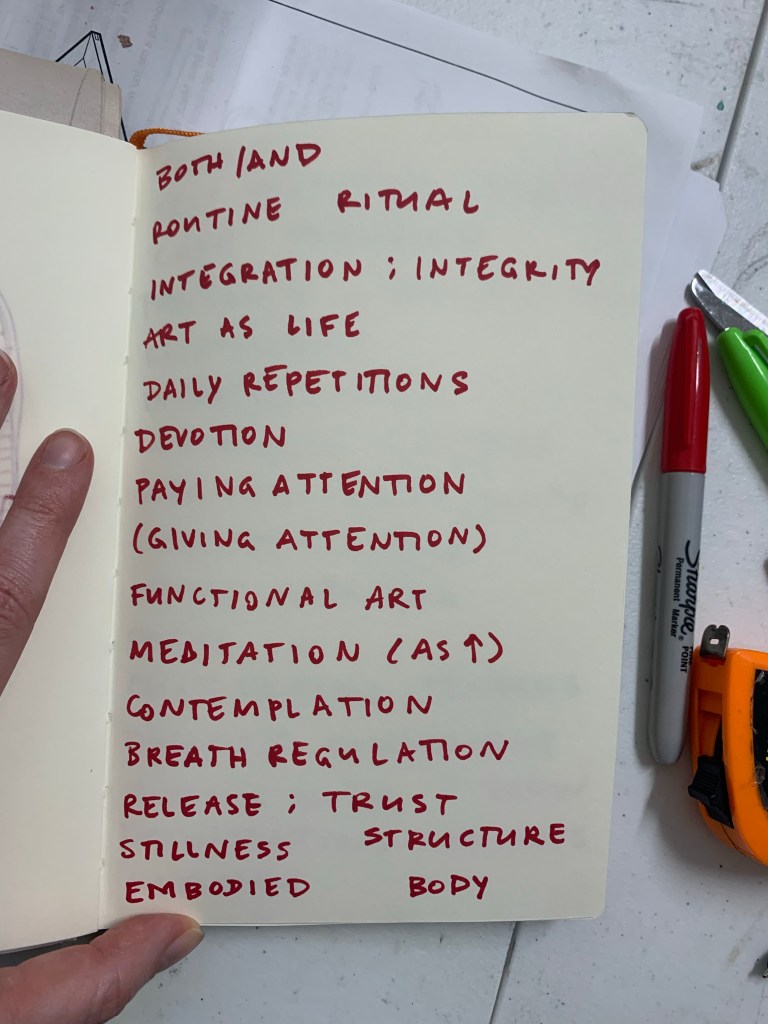 BOTH/AND
ROUTINE RITUAL
INTEGRATION ; INTEGRITY
ART AS LIFE
DAILY REPETITIONS
DEVOTION
PAYING ATTENTION
(GIVING ATTENTION)
FUNCTIONAL ART
MEDITATION (AS ↑)
CONTEMPLATION
BREATH REGULATION
RELEASE ; TRUST
STILLNESS STRUCTURE
EMBODIED BODY
Sharpie
Permanent Marker
POINT